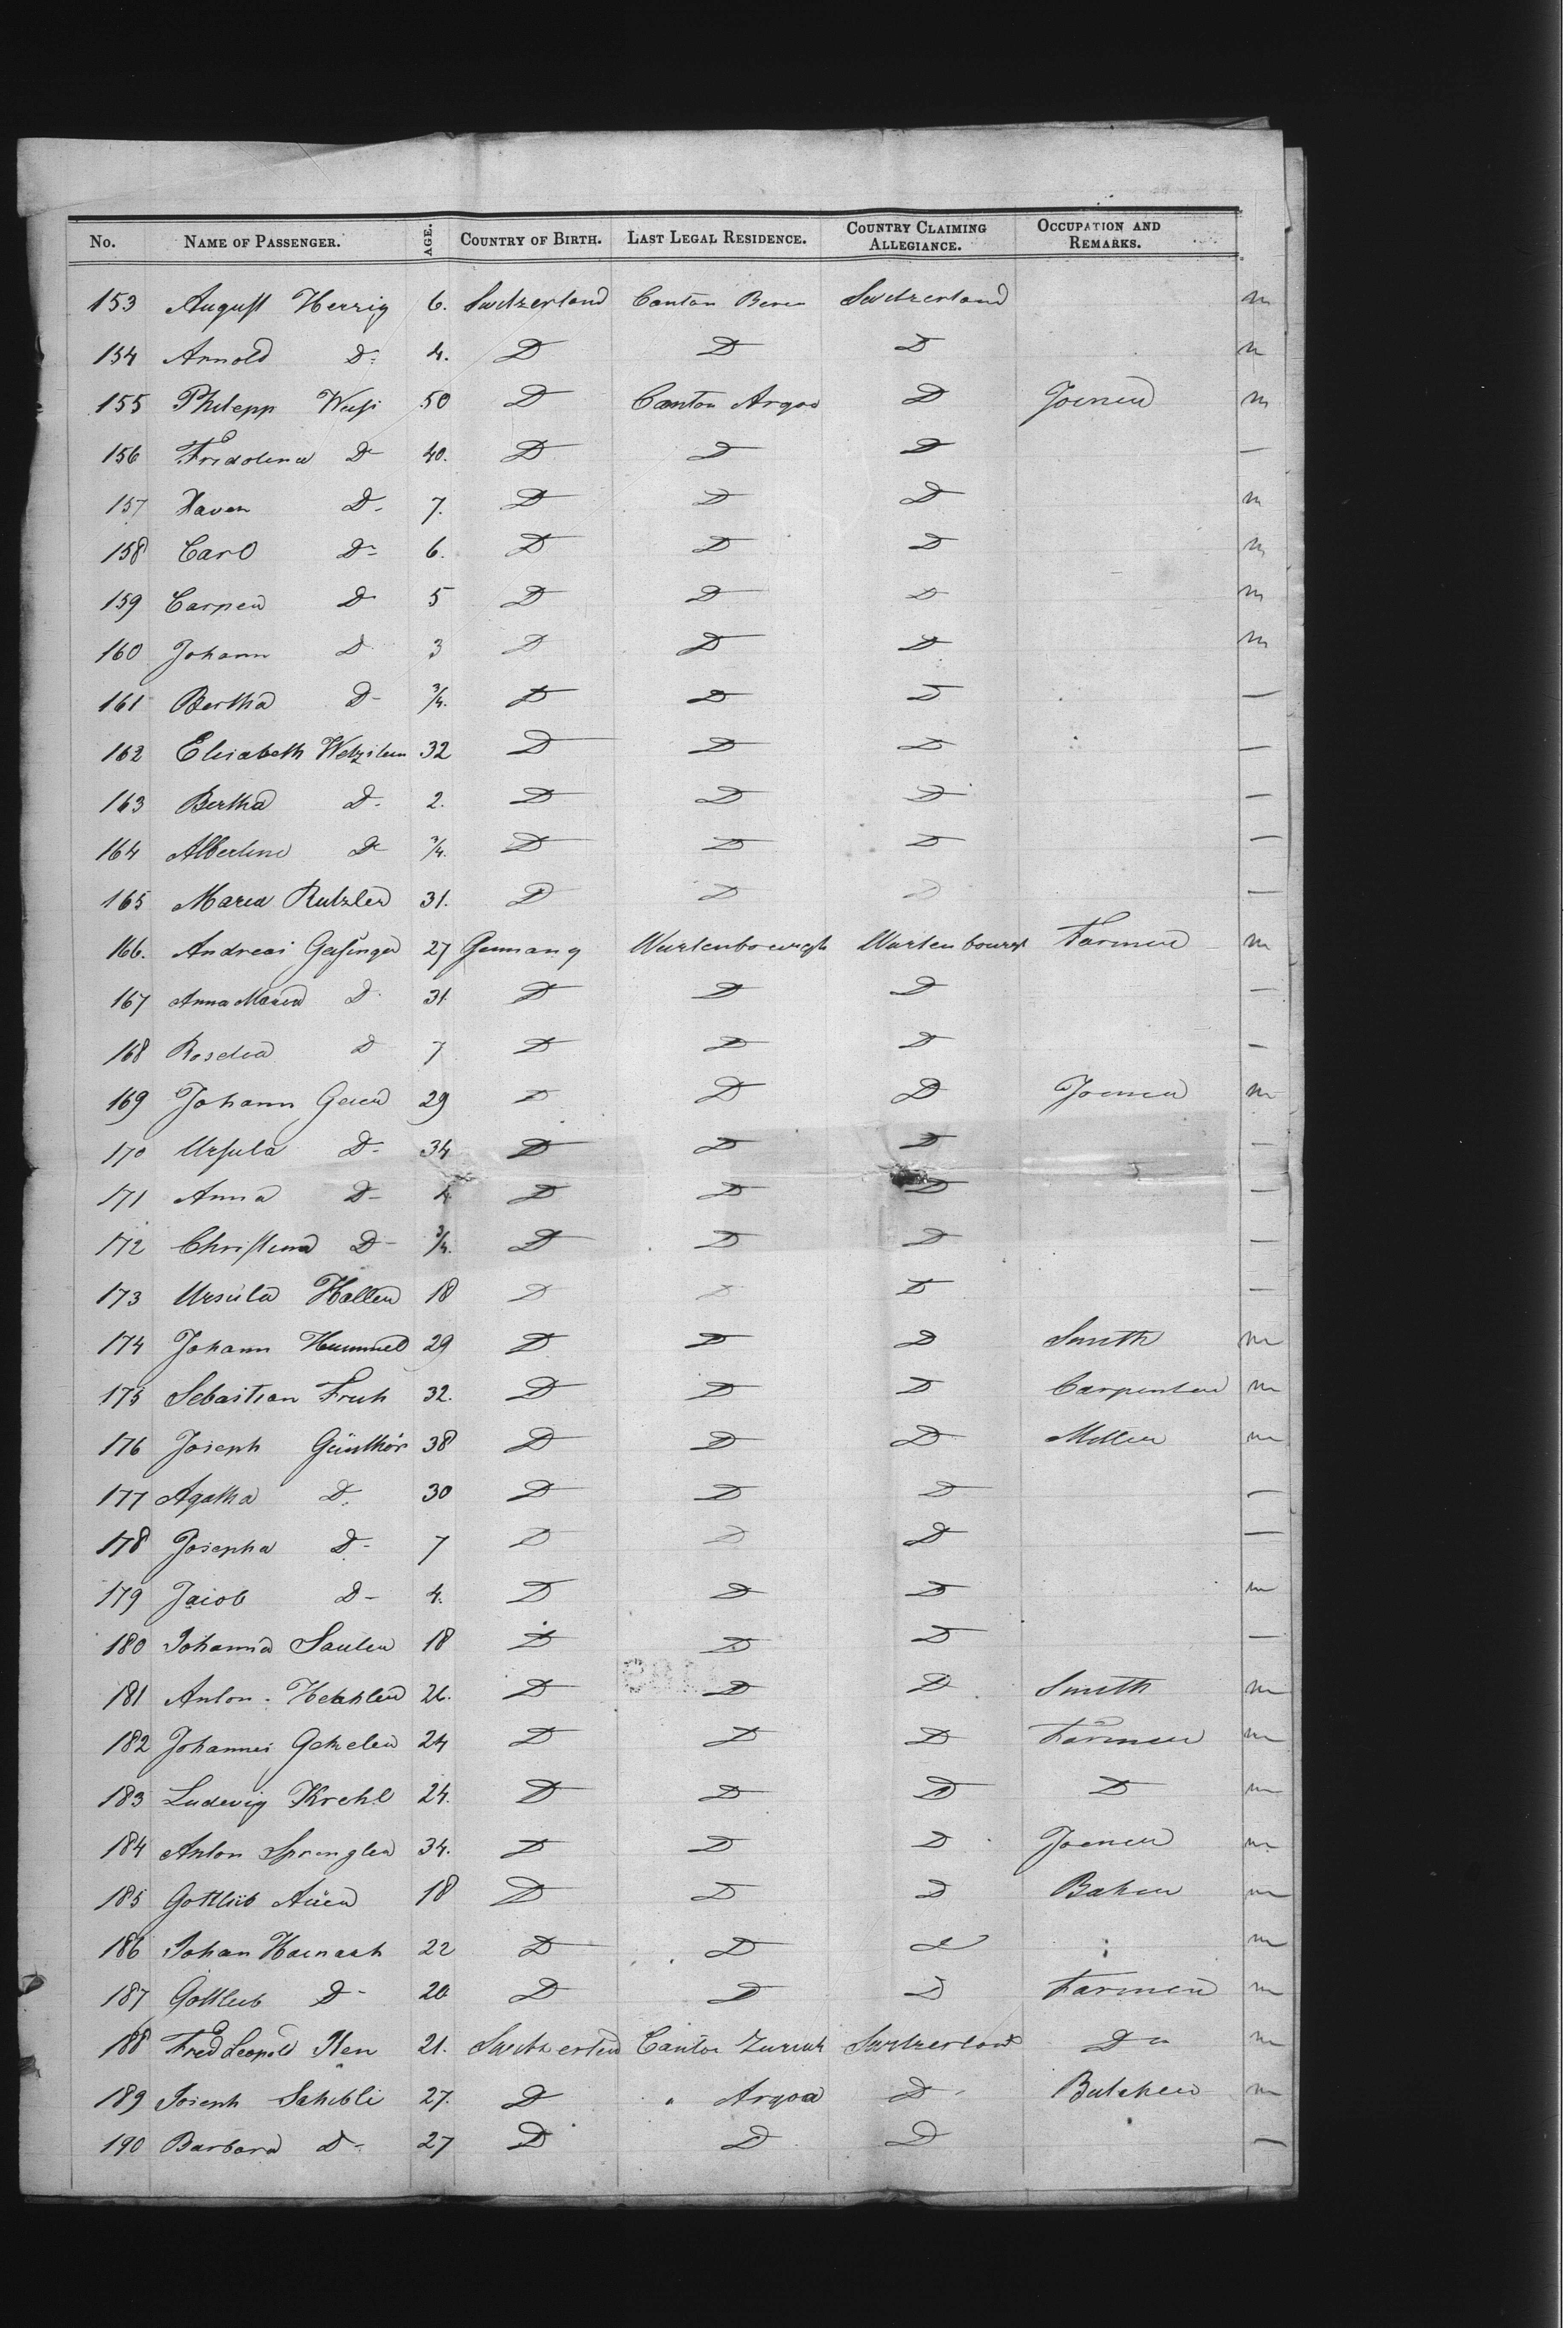 No. NAME OF PASSENGER. AGE. COUNTRY OF BIRTH. LAST LEGAL RESIDENCE. COUNTRY CLAIMING ALLEGIANCE. OCCUPATION AND REMARKS.
153 August Herzig 6. Switzerland Canton Bern Switzerland m
154 Arnold Do 4. D D D m
155 Philipp 50 D Canton Argoa D Joiner m
156 Fridolina Do 40. D D D —
157 Xaver Do 7. D D D m
158 Carl Do 6. D D D m
159 D 5 D D D m
160 Johann D 3 D D D m
161 Bertha D 3/4. D D D —
162 Elisabeth 32 D D D —
163 Bertha D 2. D D D —
164 Albertine D 3/4. D D D —
165 Maria Rutzler 31. D D D —
166. Andreas 27 Germany Wurtenbourgh Wurtenbourgh Farmer m
167 Anna Maria D 31 D D D —
168 Rosalia D 7 D D D —
169 Johann Geier 29 D D D Joiner m
170 Ursula D 34 D D D —
171 Anna D 4 D D D —
172 Christina D 3/4. D D D —
173 Ursula Haller 18 D D D —
174 Johann Hummel 29 D D D Smith m
175 Sebastian Fruh 32. D D D Carpenter m
176 Joseph Günthör 38 D D D Miller m
177 Agatha D 30 D D D —
178 Josepha D 7 D D D —
179 Jacob D 4. D D D m
180 Johanna Sauler 18 D D D —
181 Anton 26. D D D Smith m
182 Johannes 24 D D D Farmer m
183 Ludewig Krehl 24. D D D D m
184 Anton Sprengler 34. D D D Joiner m
185 Gottlieb Auer 18 D D D Baker m
186 Johan 22 D D D m
187 Gottlieb D 20 D D D Farmer m
188 Fred Leopold 21. Switzerland Canton Zurich Switzerland Do m
189 Joseph Schibli 27. D " Argoa D Butcher m
190 Barbara D 27 D D D —